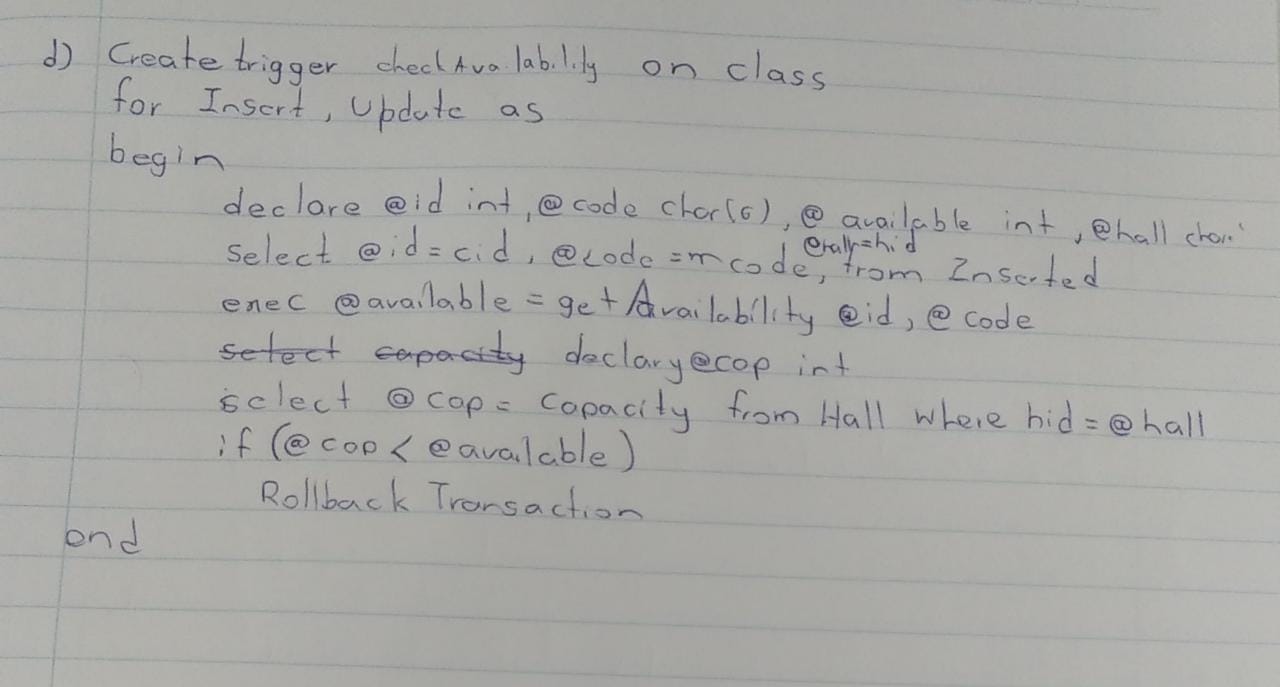 d) Create trigger checkAvailability on class
for Insert, Update as
begin
declare @id int, @code char(6), @available int, @hall char
@hall=hid
select @id = cid, @code = mcode, from Inserted
exec @available = getAvailability @id, @code
select capacity declary @cap int
select @cap = capacity from Hall where hid = @hall
if (@cap < @available)
Rollback Transaction
end